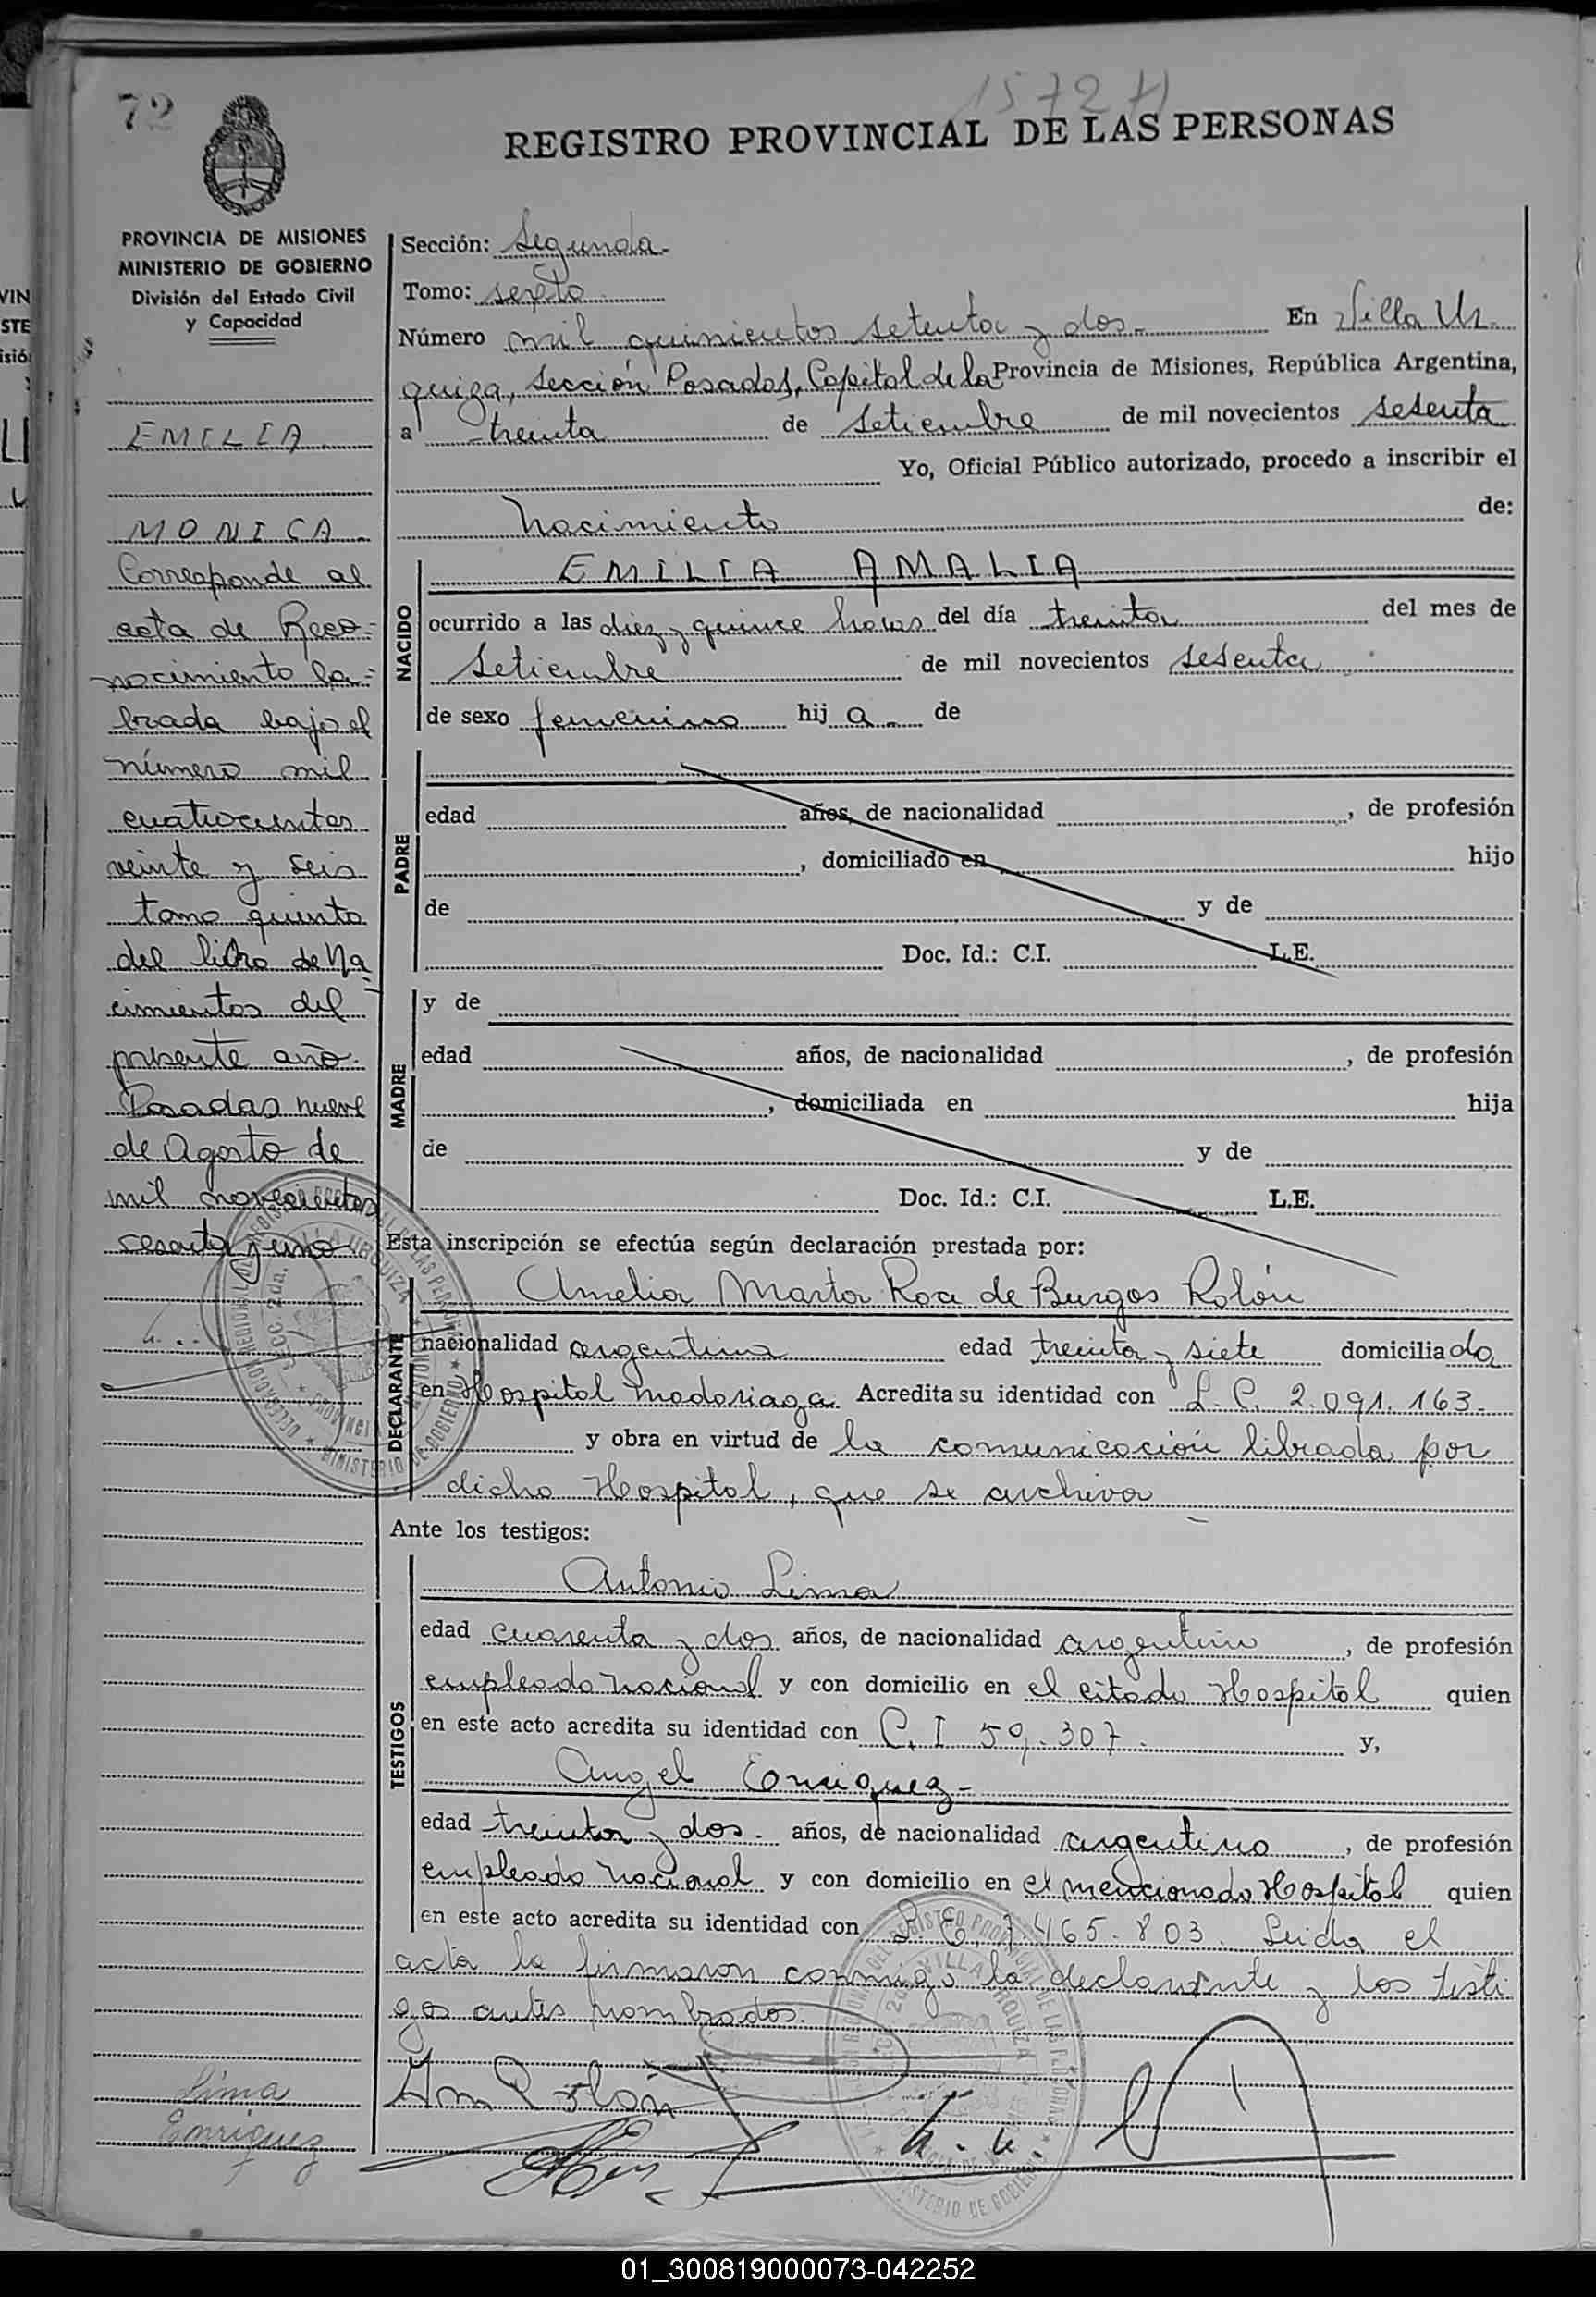 72
15727
REGISTRO PROVINCIAL DE LAS PERSONAS
PROVINCIA DE MISIONES
MINISTERIO DE GOBIERNO
División del Estado Civil
y Capacidad
EMILIA
MONICA
Corresponde al
acta de Reco=
nocimiento la=
brada bajo el
número mil
cuatrocientos
veinte y seis
tomo quinto
del libro de Na=
cimientos del
presente año.
Posadas nueve
de Agosto de
mil novecientos
sesenta y uno
Lima
Enriquez
Sección: Segunda.
Tomo: sexto
Número mil quinientos setenta y dos. En Villa Ur-
quiza, Sección Posadas, Capital de la Provincia de Misiones, República Argentina,
a treinta de Setiembre de mil novecientos sesenta
Yo, Oficial Público autorizado, procedo a inscribir el
Nacimiento de:
NACIDO
EMILIA AMALIA
ocurrido a las diez y quince horas del día treinta del mes de
Setiembre de mil novecientos sesenta
de sexo femenino hij a. de
PADRE
edad años, de nacionalidad , de profesión
, domiciliado en hijo
de y de
Doc. Id.: C.I. L.E.
MADRE
y de
edad años, de nacionalidad , de profesión
, domiciliada en hija
de y de
Doc. Id.: C.I. L.E.
Esta inscripción se efectúa según declaración prestada por:
DECLARANTE
Amelia Marta Roa de Burgos Rolón
nacionalidad argentina edad treinta y siete domicilia da
en Hospital Madariaga. Acredita su identidad con L.C. 2.091.163.
y obra en virtud de la comunicación librada por
dicho Hospital, que se archiva
Ante los testigos:
TESTIGOS
Antonio Lima
edad cuarenta y dos años, de nacionalidad argentino, de profesión
empleado nacional y con domicilio en el citado Hospital quien
en este acto acredita su identidad con C. I 59.307. y,
Angel Enriquez-
edad treinta y dos. años, de nacionalidad argentino, de profesión
empleado nacional y con domicilio en el mencionado Hospital quien
en este acto acredita su identidad con L. E. 7.465.803. Leida el
acta la firmaron conmigo la declarante y los testi
gos antes nombrados.
01_300819000073-042252